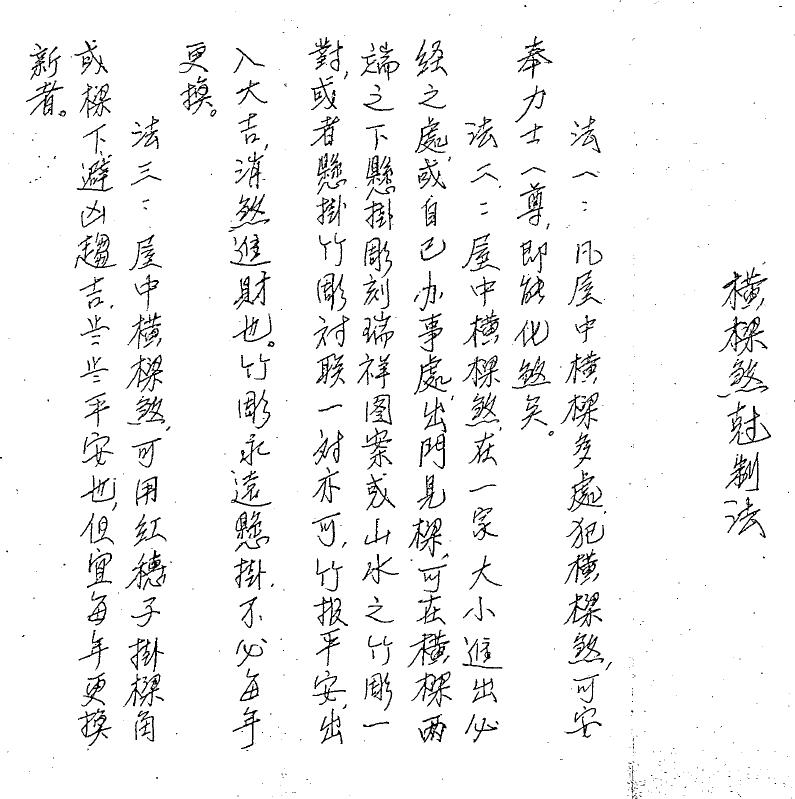 橫樑煞尅制法
法一：凡屋中橫樑多處，犯橫樑煞，可安
奉力士一尊，即能化煞矣。
法二：屋中橫樑煞，在一家大小進出必
経之處，或自己办事處，出門見樑，可在橫樑兩
端之下懸掛彫刻瑞祥图案或山水之竹彫一
對，或者懸掛竹彫对联一对亦可，竹报平安，出
入大吉，消煞進財也。竹彫永遠懸掛，不必每年
更換。
法三：屋中橫樑煞，可用紅穗子掛樑角
或樑下避凶趨吉，平安也，但宜每年更換
新者。